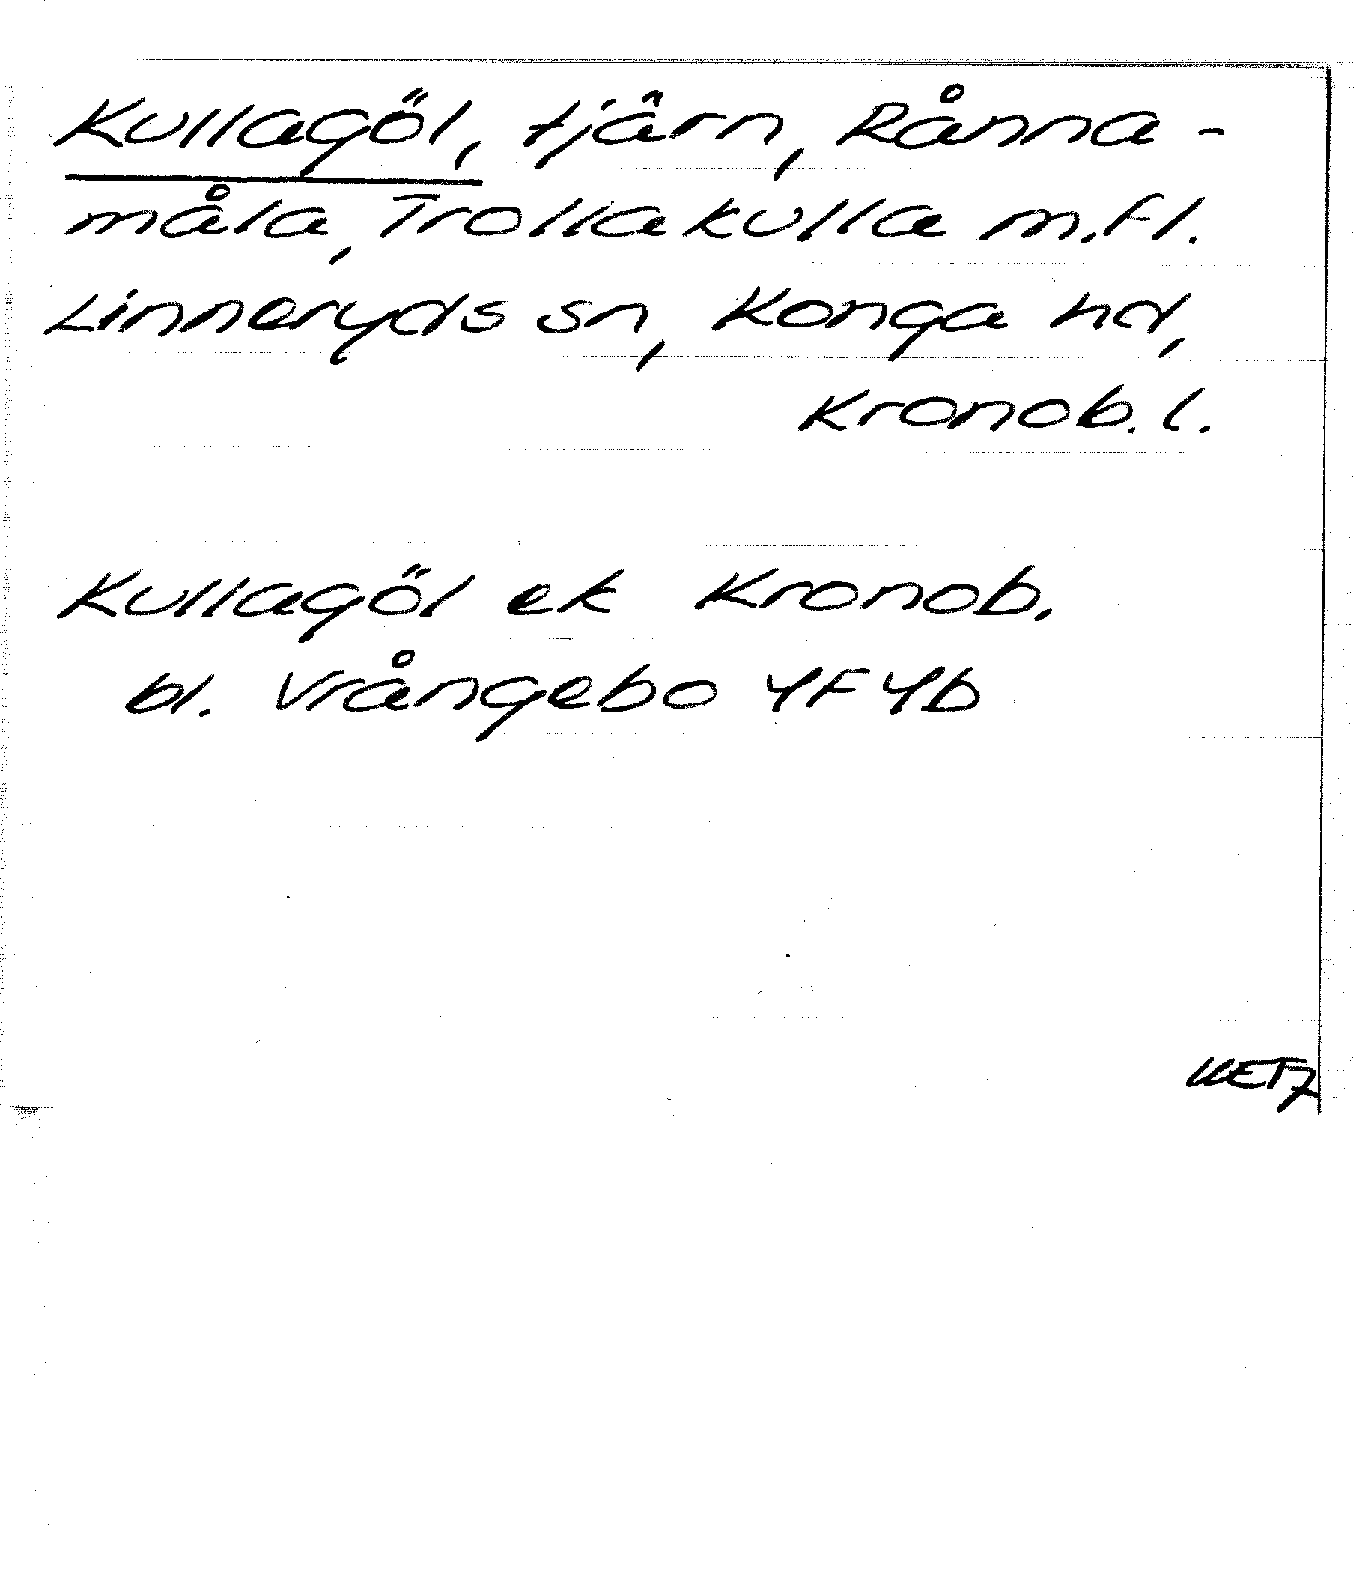 Kullagöl, tjärn, Rånna-
måla, Trollakulla m.fl.
Linneryds sn, Konga hd,
Kronob. l.
Kullagöl ek Kronob.
bl. Vrångebo 4F4b